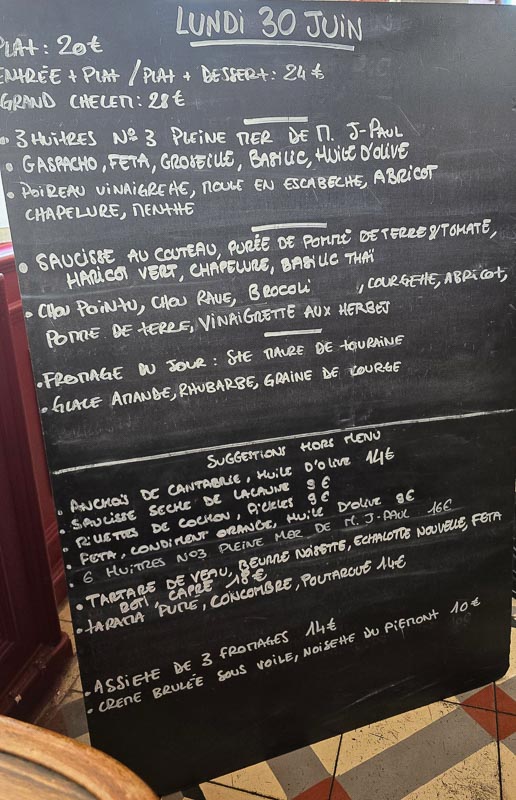 LUNDI 30 JUIN
PLAT : 20€
ENTRÉE + PLAT / PLAT + DESSERT : 24€
GRAND CHELEM : 28€
• 3 HUITRES N°3 PLEINE MER DE M. J-PAUL
• GASPACHO, FETA, GROSEILLE, BASILIC, HUILE D'OLIVE
• POIREAU VINAIGRETTE, MOULE EN ESCABECHE, ABRICOT
CHAPELURE, MENTHE
• SAUCISSE AU COUTEAU, PURÉE DE POMME DE TERRE & TOMATE,
HARICOT VERT, CHAPELURE, BASILIC THAÏ
• CHOU POINTU, CHOU RAVE, BROCOLI , COURGETTE, ABRICOT,
POMME DE TERRE, VINAIGRETTE AUX HERBES
• FROMAGE DU JOUR : STE MAURE DE TOURAINE
• GLACE AMANDE, RHUBARBE, GRAINE DE COURGE
SUGGESTIONS HORS MENU
• ANCHOIS DE CANTABRIE, HUILE D'OLIVE 14€
• SAUCISSE SECHE DE LACAUNE 9€
• RILLETTES DE COCHON, PICKLES 9€
• FETA, CONDIMENT ORANGE, HUILE D'OLIVE 9€
• 6 HUITRES N°3 PLEINE MER DE M. J-PAUL 16€
• TARTARE DE VEAU, BEURRE NOISETTE, ECHALOTTE NOUVELLE, FETA
CAPRE 18€
• TARAMA PUTE, CONCOMBRE, POUTARGUE 14€
• ASSIETTE DE 3 FROMAGES 14€
• CREME BRULÉE SOUS VOILE, NOISETTE DU PIEMONT 10€